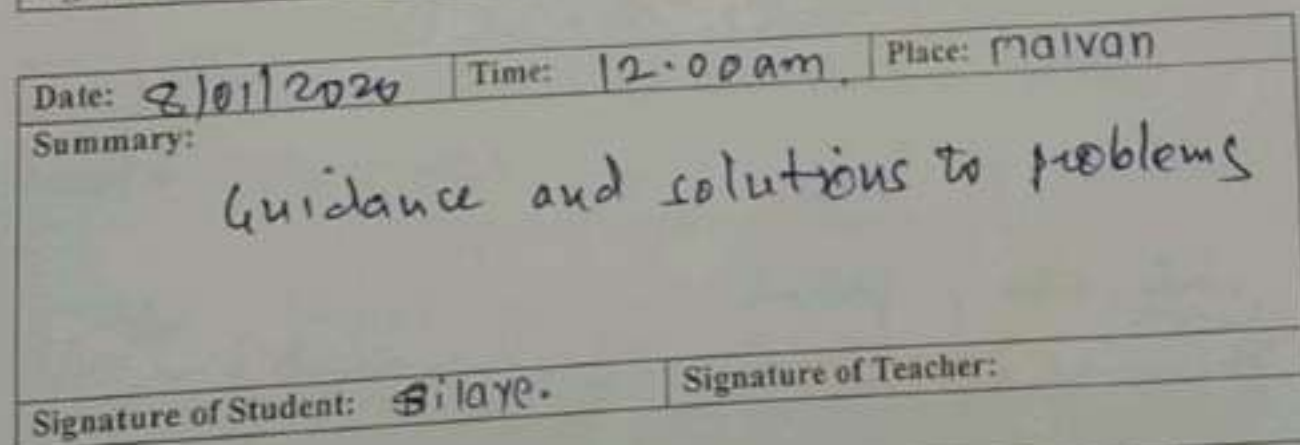 Date: 8/01/2020 Time: 12.00am. Place: malvan
Summary:
Guidance and solutions to problems
Signature of Student: Bilaye. Signature of Teacher: